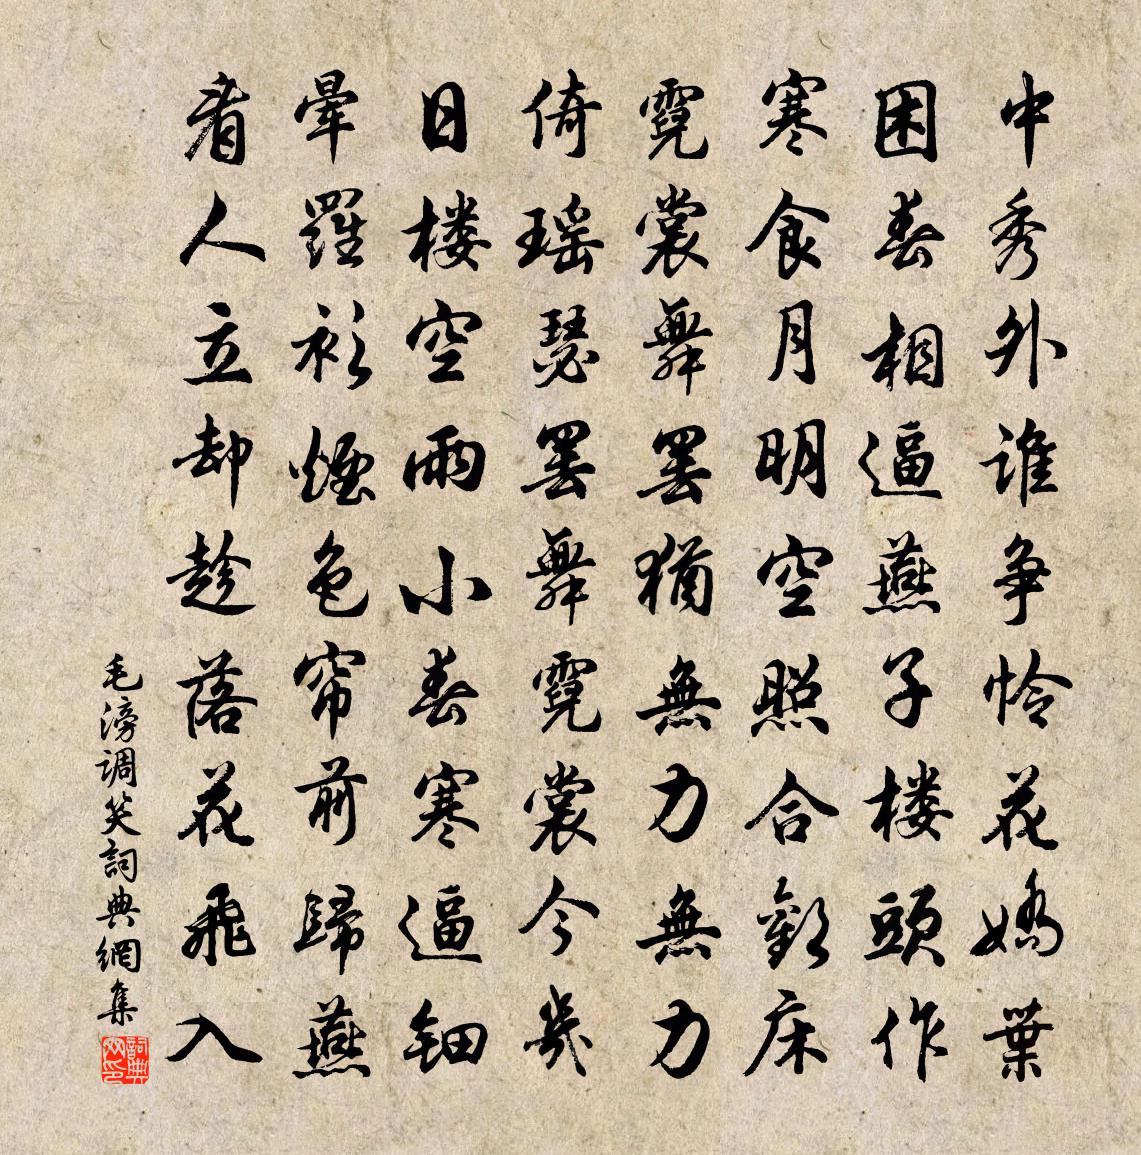 中秀外谁争怜花娇葉
困春相逼燕子楼頭作
寒食月明空照合歡床
霓裳舞罢猶無力無力
倚瑶瑟罢舞霓裳今幾
日楼空雨小春寒逼钿
暈羅衫煙色帘前歸燕
看人立却趁落花飛入
毛滂调笑詞典網集
詞典网印